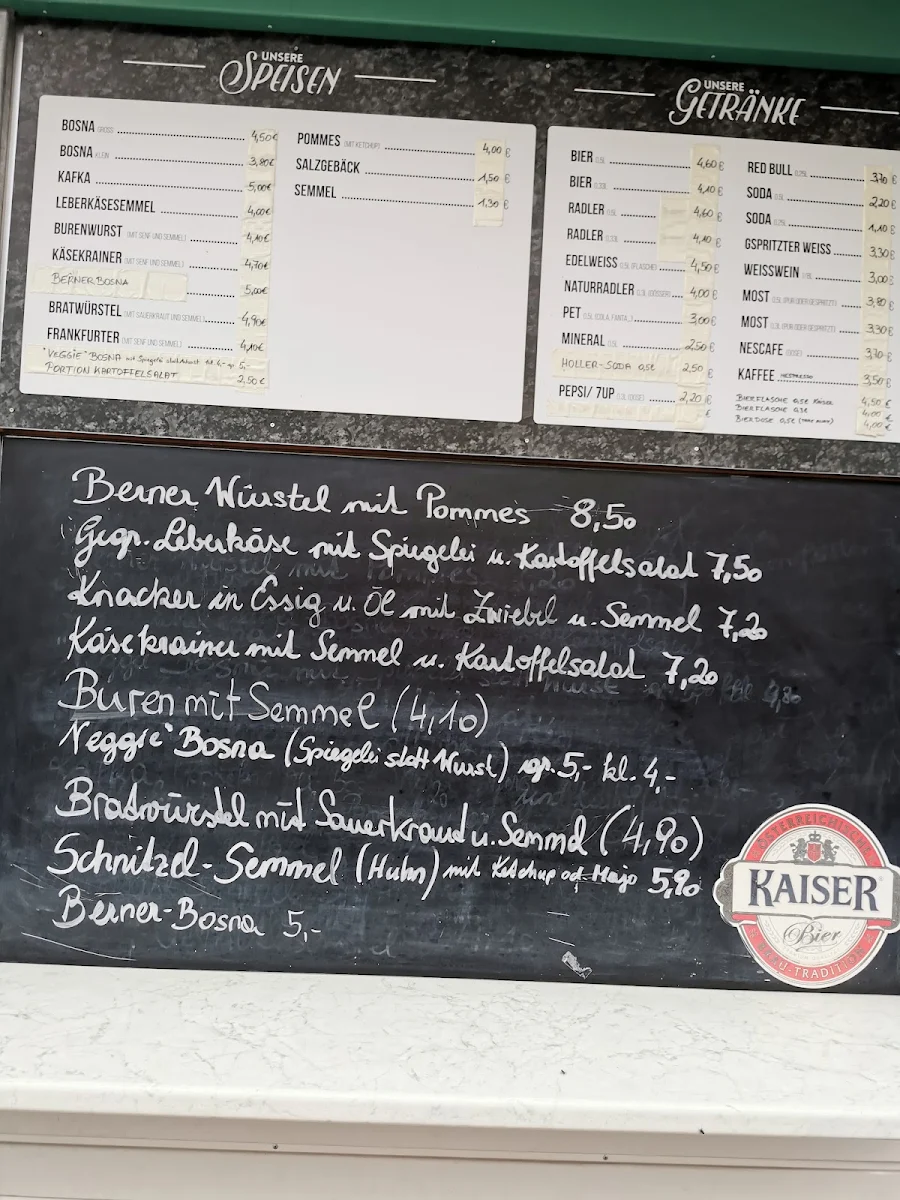 UNSERE
SPEISEN
BOSNA GROSS 4,50€
BOSNA KLEIN 3,80€
KAFKA 5,00€
LEBERKÄSESEMMEL 4,00€
BURENWURST (MIT SENF UND SEMMEL) 4,10€
KÄSEKRAINER (MIT SENF UND SEMMEL) 4,70€
BERNER BOSNA 5,00€
BRATWÜRSTEL (MIT SAUERKRAUT UND SEMMEL) 4,90€
FRANKFURTER (MIT SENF UND SEMMEL) 4,10€
"VEGGIE" BOSNA mit Spiegelei statt Wurst kl. 4,- gr. 5,-
PORTION KARTOFFELSALAT 2,50€
POMMES (MIT KETCHUP) 4,00 €
SALZGEBÄCK 1,50 €
SEMMEL 1,30 €
UNSERE
GETRÄNKE
BIER 0,5L 4,60€
BIER 0,33L 4,10€
RADLER 0,5L 4,60
RADLER 0,33L 4,10€
EDELWEISS 0,5L (FLASCHE) 4,50€
NATURRADLER 0,5L (GÖSSER) 4,00€
PET 0,5L (COLA, FANTA,..) 3,00€
MINERAL 0,5L 2,50€
HOLLER-SODA 0,5L 2,50€
PEPSI/ 7UP 0,3L (DOSE) 2,20€
€
RED BULL 0,25L 3,70€
SODA 0,5L 2,20€
SODA 0,25L 1,10€
GSPRITZTER WEISS 3,30€
WEISSWEIN 1/8L 3,00€
MOST 0,5L (PUR ODER GESPRITZT) 3,80€
MOST 0,3L (PUR ODER GESPRITZT) 3,30€
NESCAFE (DOSE) 3,70€
KAFFEE NESPRESSO 3,50€
BIERFLASCHE 0,5L KAISER 4,50€
BIERFLASCHE 0,3L 4,00€
BIERDOSE 0,5L 4,00€
Berner Würstel mit Pommes 8,50
Gegr. Leberkäse mit Spiegelei u. Kartoffelsalat 7,50
Knacker in Essig u. Öl mit Zwiebel u. Semmel 7,20
Käsekrainer mit Semmel u. Kartoffelsalat 7,20
Buren mit Semmel (4,10)
"Veggie" Bosna (Spiegelei statt Wurst) gr. 5,- kl. 4,-
Bratwürstel mit Sauerkraut u. Semmel (4,90)
Schnitzel-Semmel (Huhn) mit Ketchup od. Majo 5,90
Berner-Bosna 5,-
ÖSTERREICHISCHE
KAISER
Bier
BRAU-TRADITION